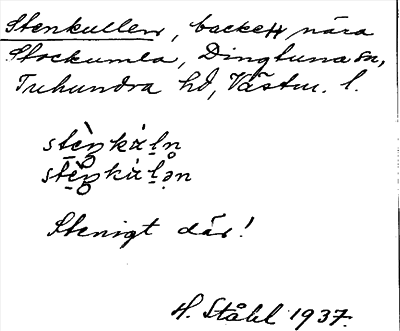 Stenkullen, backe nära
Stockumla, Dingtuna sn,
Tuhundra hd, Västm. l.
Stenigt där!
H. Ståhl 1937.